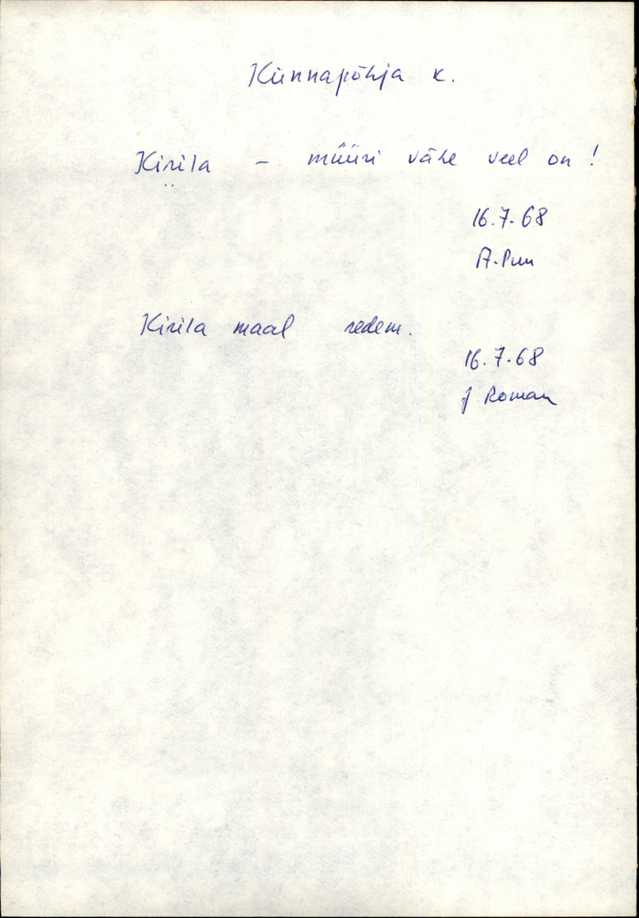 Künnapõhja k.
Kirila – müüri vähe veel on!
16.7.68
A. Puu
Kirila maal redem.
16.7.68
J Roman